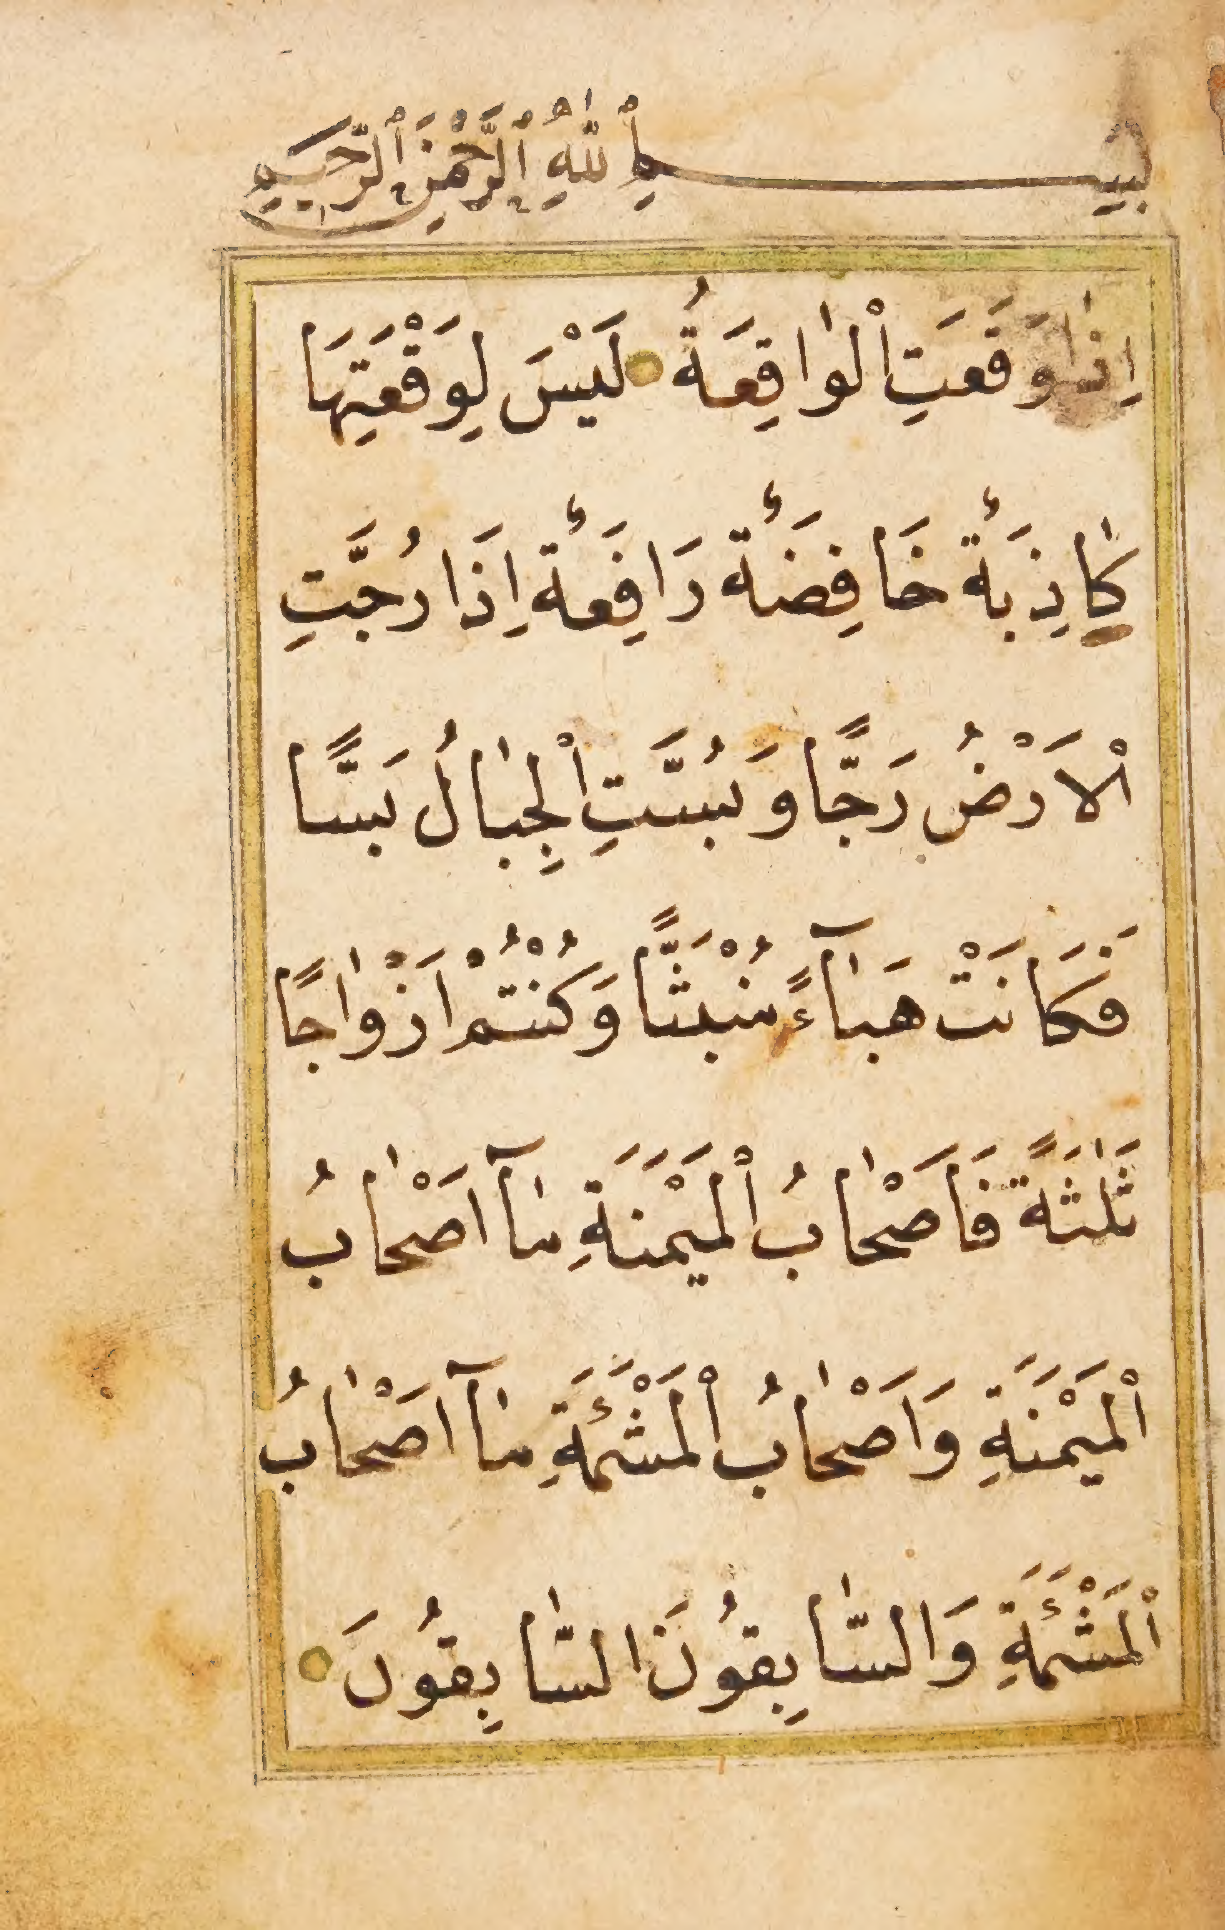 بِسْمِ اللّٰهِ الرَّحْمٰنِ الرَّحِيمِ
اِذٰا وَقَعَتِ الْوٰاقِعَةُ لَيْسَ لِوَقْعَتِهَا
كٰاذِبَةٌ خَافِضَةٌ رَافِعَةٌ اِذَا رُجَّتِ
الْاَرْضُ رَجًّا وَبُسَّتِ الْجِبٰالُ بَسًّا
فَكَانَتْ هَبٰآءً مُنْبَثًّا وَكُنْتُمْ اَزْوٰاجًا
ثَلٰثَةً فَاَصْحٰابُ الْمَيْمَنَةِ مٰآ اَصْحٰابُ
الْمَيْمَنَةِ وَاَصْحٰابُ الْمَشْئَمَةِ مٰآ اَصْحٰابُ
الْمَشْئَمَةِ وَالسّٰابِقُونَ السّٰابِقُونَ